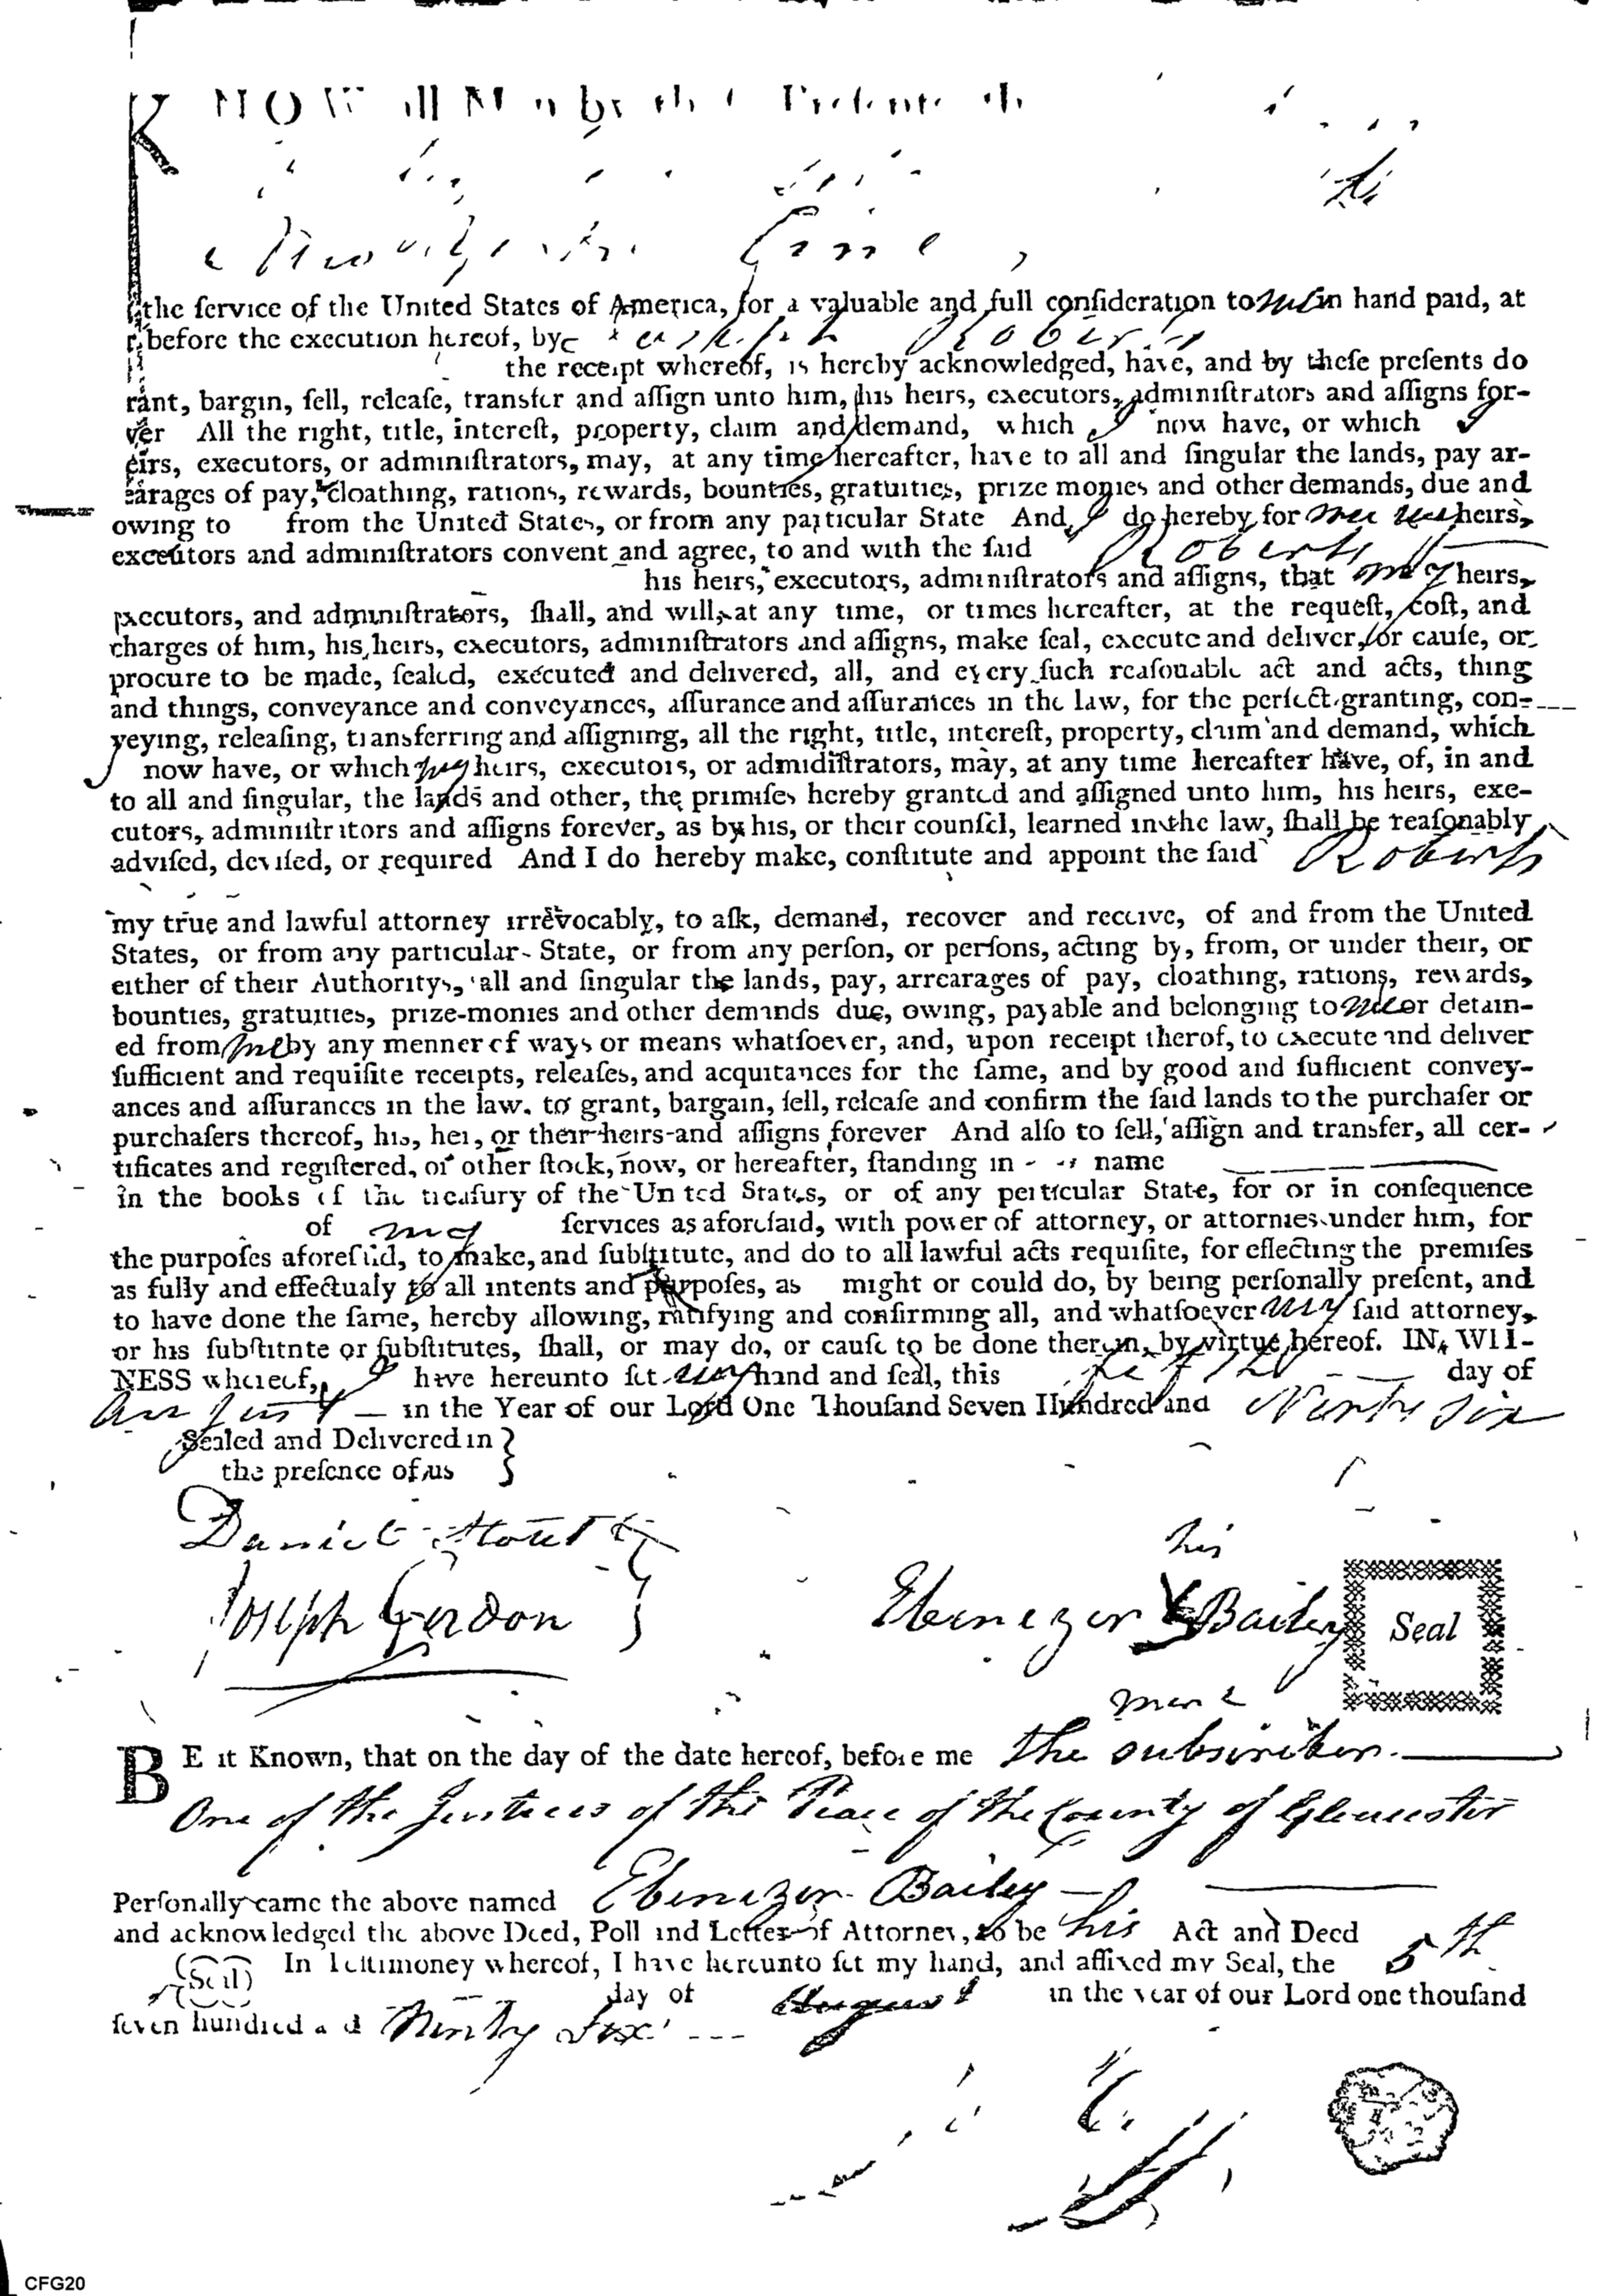 KNOW all Men by these Presents
the ſervice of the United States of America, for a valuable and full conſideration to me in hand paid, at
before the execution hereof, by Joseph Roberts
the receipt whereof, is hereby acknowledged, have, and by theſe preſents do
rant, bargin, ſell, releaſe, transfer and aſſign unto him, his heirs, executors, adminiſtrators and aſſigns for-
ver All the right, title, intereſt, property, claim and demand, which I now have, or which
eirs, executors, or adminiſtrators, may, at any time hereafter, have to all and ſingular the lands, pay ar-
earages of pay, cloathing, rations, rewards, bounties, gratuities, prize monies and other demands, due and
owing to from the United States, or from any particular State And I do hereby for heirs,
executors and adminiſtrators convent and agree, to and with the ſaid Roberts
his heirs, executors, adminiſtrators and aſſigns, that my heirs,
executors, and adminiſtrators, ſhall, and will, at any time, or times hereafter, at the requeſt, coſt, and
charges of him, his heirs, executors, adminiſtrators and aſſigns, make ſeal, execute and deliver, or cauſe, or
procure to be made, ſealed, executed and delivered, all, and every ſuch reaſouable act and acts, thing
and things, conveyance and conveyances, aſſurance and aſſurances in the law, for the perfect granting, con-
veying, releaſing, transferring and aſſigning, all the right, title, intereſt, property, claim and demand, which
I now have, or which my heirs, executors, or admidiſtrators, may, at any time hereafter have, of, in and
to all and ſingular, the lands and other, the primiſes hereby granted and aſſigned unto him, his heirs, exe-
cutors, adminiſtrators and aſſigns forever, as by his, or their counſel, learned in the law, ſhall be reaſonably
adviſed, deviſed, or required And I do hereby make, conſtitute and appoint the ſaid Roberts
my true and lawful attorney irrevocably, to aſk, demand, recover and receive, of and from the United
States, or from any particular State, or from any perſon, or perſons, acting by, from, or under their, or
either of their Authoritys, all and ſingular the lands, pay, arrearages of pay, cloathing, rations, rewards,
bounties, gratuities, prize-monies and other demands due, owing, payable and belonging to me or detain-
ed from me by any menner of ways or means whatſoever, and, upon receipt therof, to execute and deliver
ſufficient and requiſite receipts, releaſes, and acquitances for the ſame, and by good and ſufficient convey-
ances and aſſurances in the law. to grant, bargain, ſell, releaſe and confirm the ſaid lands to the purchaſer or
purchaſers thereof, his, her, or their heirs and aſſigns forever And alſo to ſell, aſſign and transfer, all cer-
tificates and regiſtered, or other ſtock, now, or hereafter, ſtanding in name
in the books of the treaſury of the United States, or of any perticular State, for or in conſequence
of my ſervices as aforeſaid, with power of attorney, or attornies under him, for
the purpoſes aforeſaid, to make, and ſubſtitute, and do to all lawful acts requiſite, for effecting the premiſes
as fully and effectualy to all intents and purpoſes, as might or could do, by being perſonally preſent, and
to have done the ſame, hereby allowing, ratifying and confirming all, and whatſoever my ſaid attorney,
or his ſubſtitnte or ſubſtitutes, ſhall, or may do, or cauſe to be done therein, by virtue hereof. IN WIT-
NESS whereof, I have hereunto ſet my hand and ſeal, this fifth day of
August in the Year of our Lord One Thouſand Seven Hundred and Ninty Six
Sealed and Delivered in }
the preſence of us }
Daniel Stout
Joseph Gordon }
his
Ebenezer Bailey Seal
mark
BE it Known, that on the day of the date hereof, before me the subscriber
One of the Justices of the Peace of the County of Gloucester
Perſonally came the above named Ebenezer Bailey
and acknowledged the above Deed, Poll and Letter of Attorney, to be his Act and Deed
(Seal) In Teſtimoney whereof, I have hereunto ſet my hand, and affixed my Seal, the 5th
day of August in the year of our Lord one thouſand
ſeven hundred and Ninty Six
CFG20